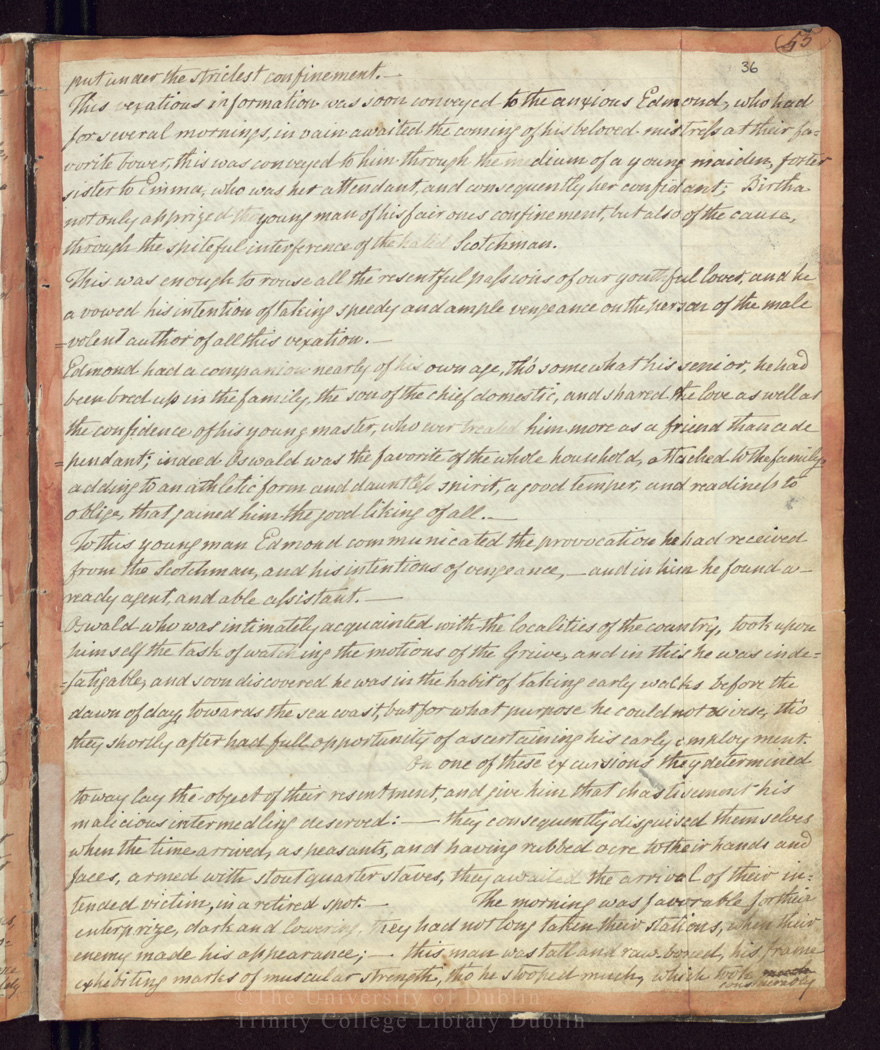 45
36
put under the strictest confinement. —
This vexatious information was soon conveyed to the anxious Edmond, who had
for several mornings, in vain awaited the coming of his beloved mistress at their fa=
vorite bower, this was conveyed to him through the medium of a young maiden, foster
sister to Emma, who was her attendant, and consequently her confidant; Birtha
not only apprized the young man of his fair ones confinement, but also of the cause,
through the spiteful interference of the hated Scotchman.
This was enough to rouse all the resentful passions of our youthful lover, and he
avowed his intention of taking speedy and ample vengeance on the person of the male
=volent author of all this vexation. —
Edmond had a companion nearly of his own age, tho somewhat his senior, he had
been bred up in the family, the son of the chief domestic, and shared the love as well as
the confidence of his young master, who ever treated him more as a friend than a de
=pendant; indeed Oswald was the favorite of the whole household, attached to the family,
adding to an athletic form and dauntless spirit, a good temper, and readiness to
oblige, that gained him the good liking of all. —
To this young man Edmond communicated the provocation he had received
from the Scotchman, and his intentions of vengeance, — and in him he found a
ready agent, and able assistant. —
Oswald who was intimately acquainted with the localities of the country, took upon
himself the task of watching the motions of the Grieve, and in this he was inde=
=fatigable, and soon discovered he was in the habit of taking early walks before the
dawn of day, towards the sea coast, but for what purpose he could not divise, tho
they shortly after had full opportunity of ascertaining his early employment.
On one of these excursions they determined
to way lay the object of their resentment, and give him that chastisement his
malicious intermedling deserved: — they consequently disguised themselves
when the time arrived, as peasants, and having rubbed ocre to their hands and
faces, armed with stout quarter staves, they awaited the arrival of their in=
tended victim, in a retired spot. — The morning was favorable for their
enterprize, dark and lowering, they had not long taken their stations, when their
enemy made his appearance; — this man was tall and raw-boned, his frame
exhibiting marks of muscular strength, tho he stooped much, which took much
considerably
©The University of Dublin
Trinity College Library Dublin